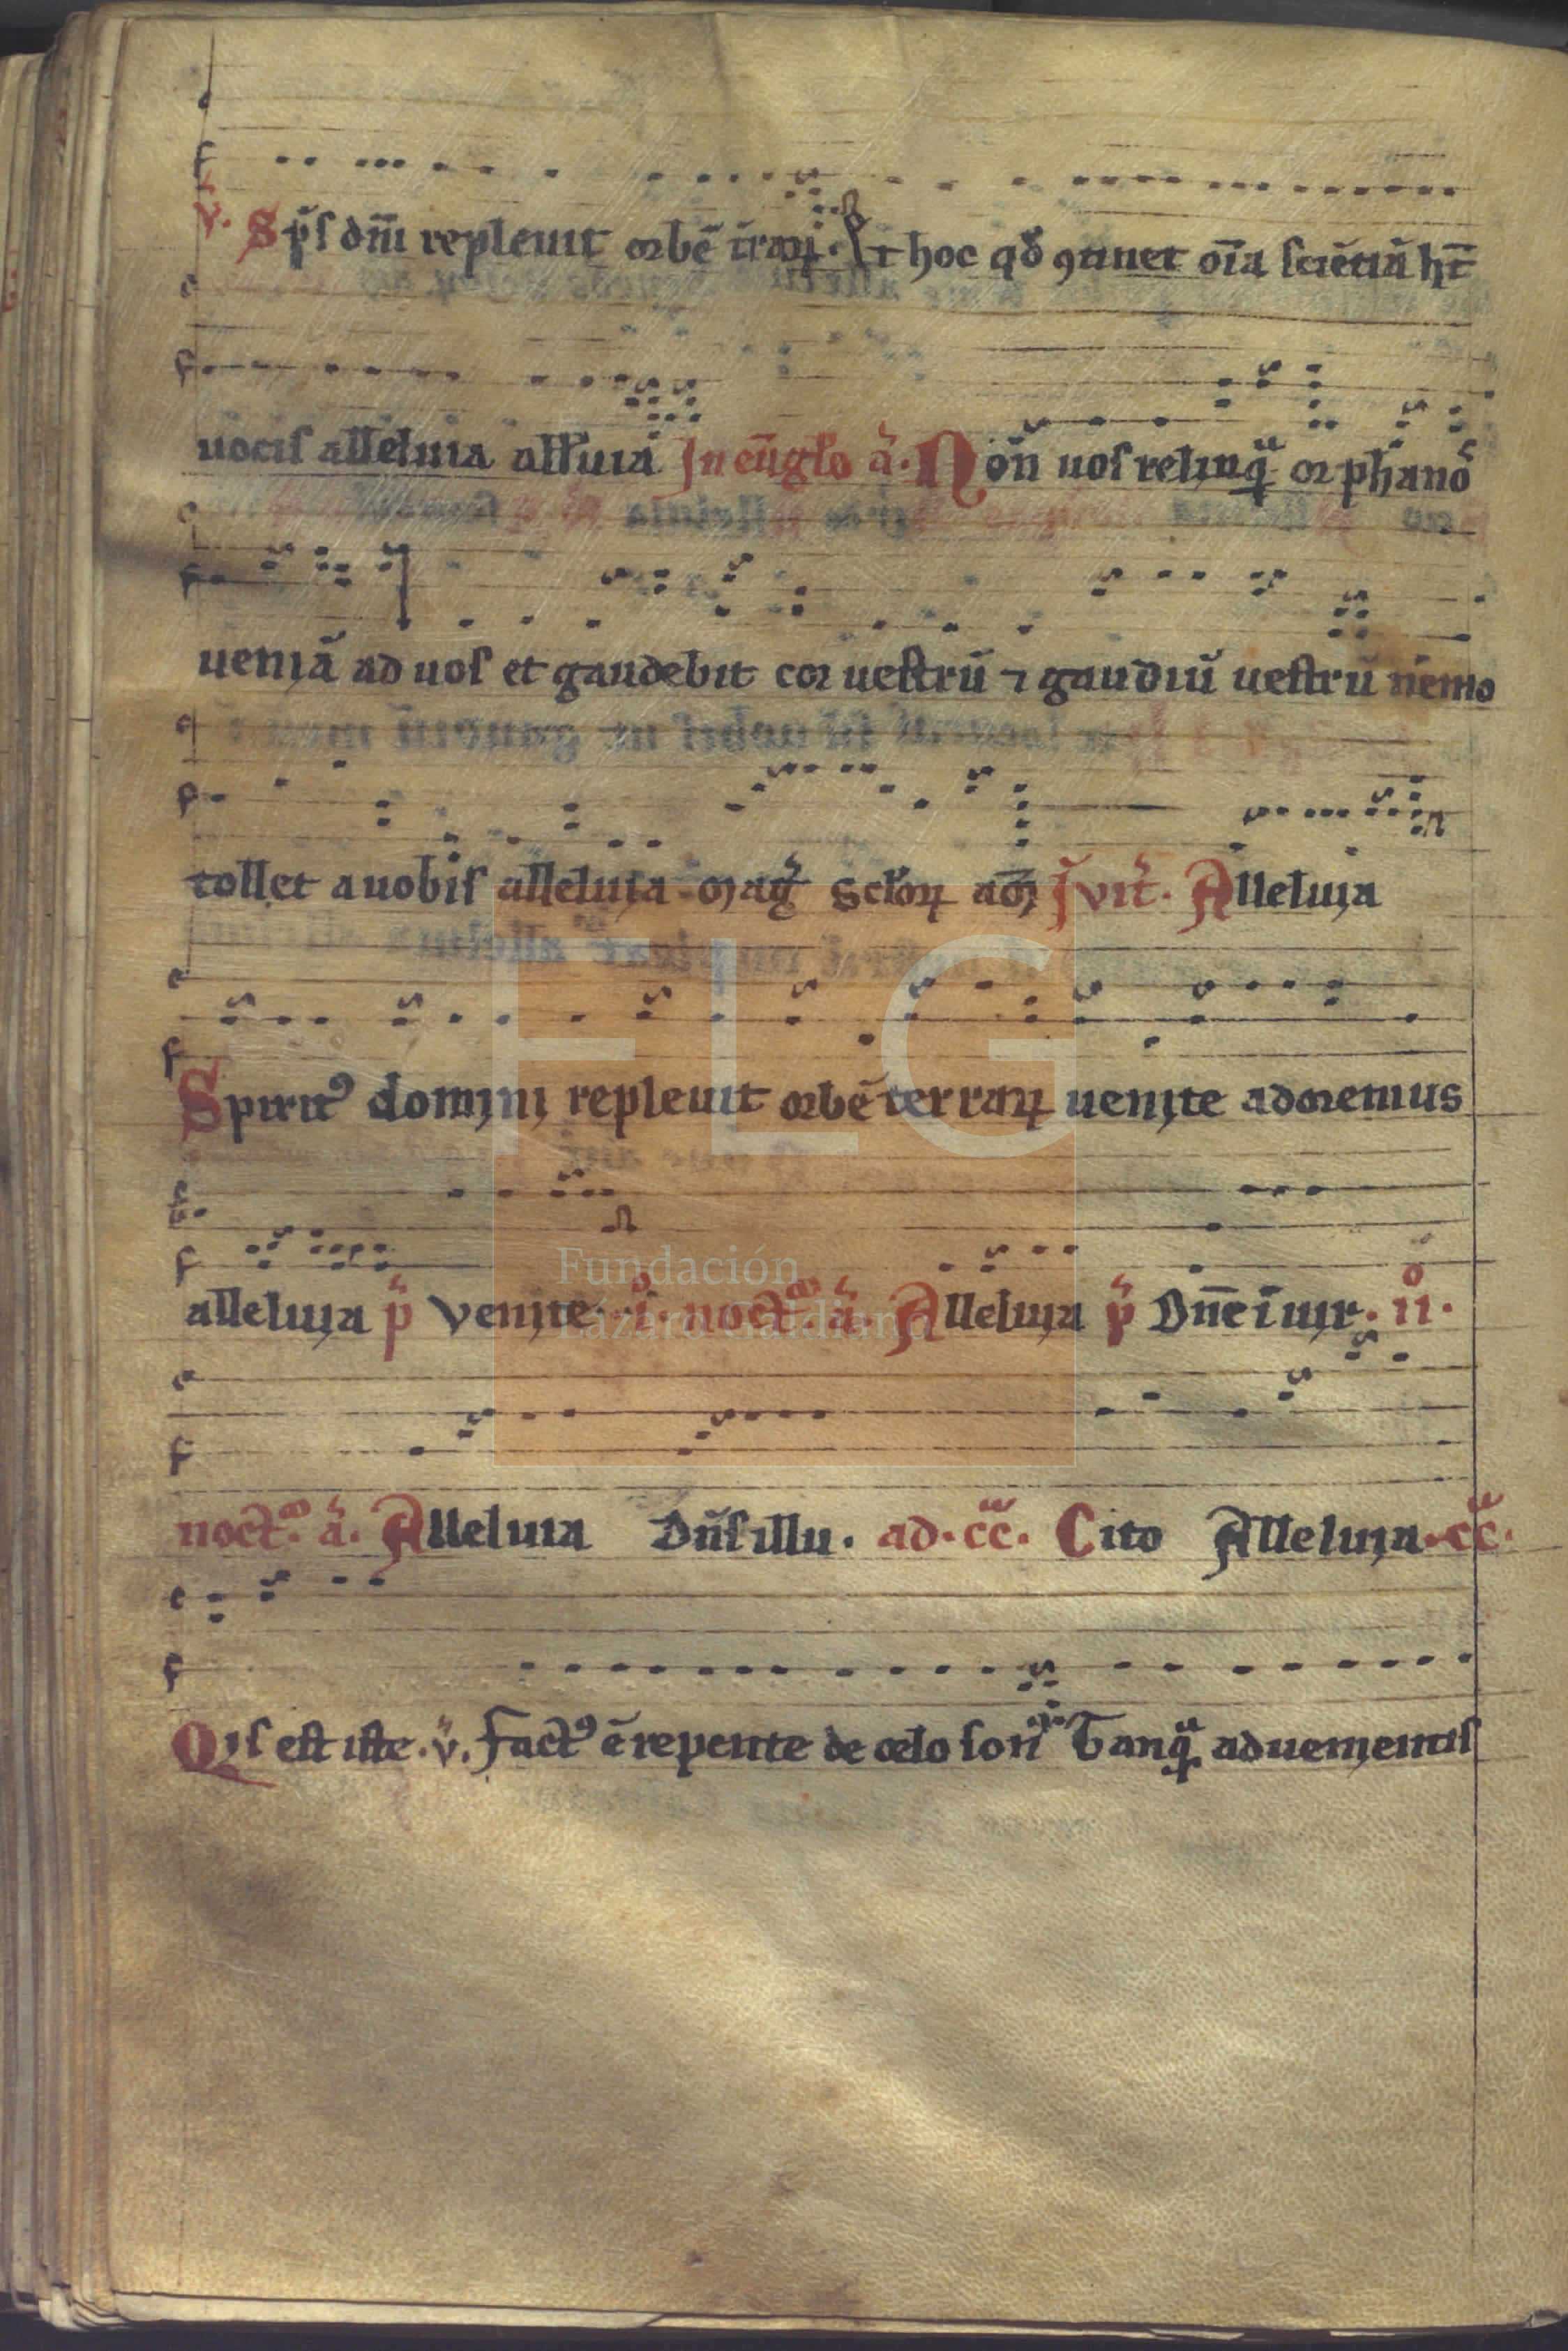 v. Sp̄s dm̄i repleuit orbē t̄raꝝ. Et hoc qd̄ ꝯtinet oīa sciētiā ht̄
uocis alleluia all̄uia In eu̅gl̄o a̅. Non̄ uos relinqͣ orphano
ueniā ad uos et gaudebit cor uestrū ⁊ gaudiū uestrū nemo
tollet a uobis alleluia magͥ Scl̄oꝝ am̄ Īvit̄. Alleluia
Spiritꝰ domini repleuit orbē terraꝝ uenite adoremus
alleluia p̄ venite. i. noct̄. a̅. Alleluia p̄ Dn̄e ī uir. ii.
noct̄. a̅. Alleluia Dn̄s illu. ad. cc̄. Cito Alleluia. cc̄.
Qis est iste. v̄. Factꝰ ē repente de celo son Tanqͣ aduenientis
FLG
Fundación
Lázaro Galdiano